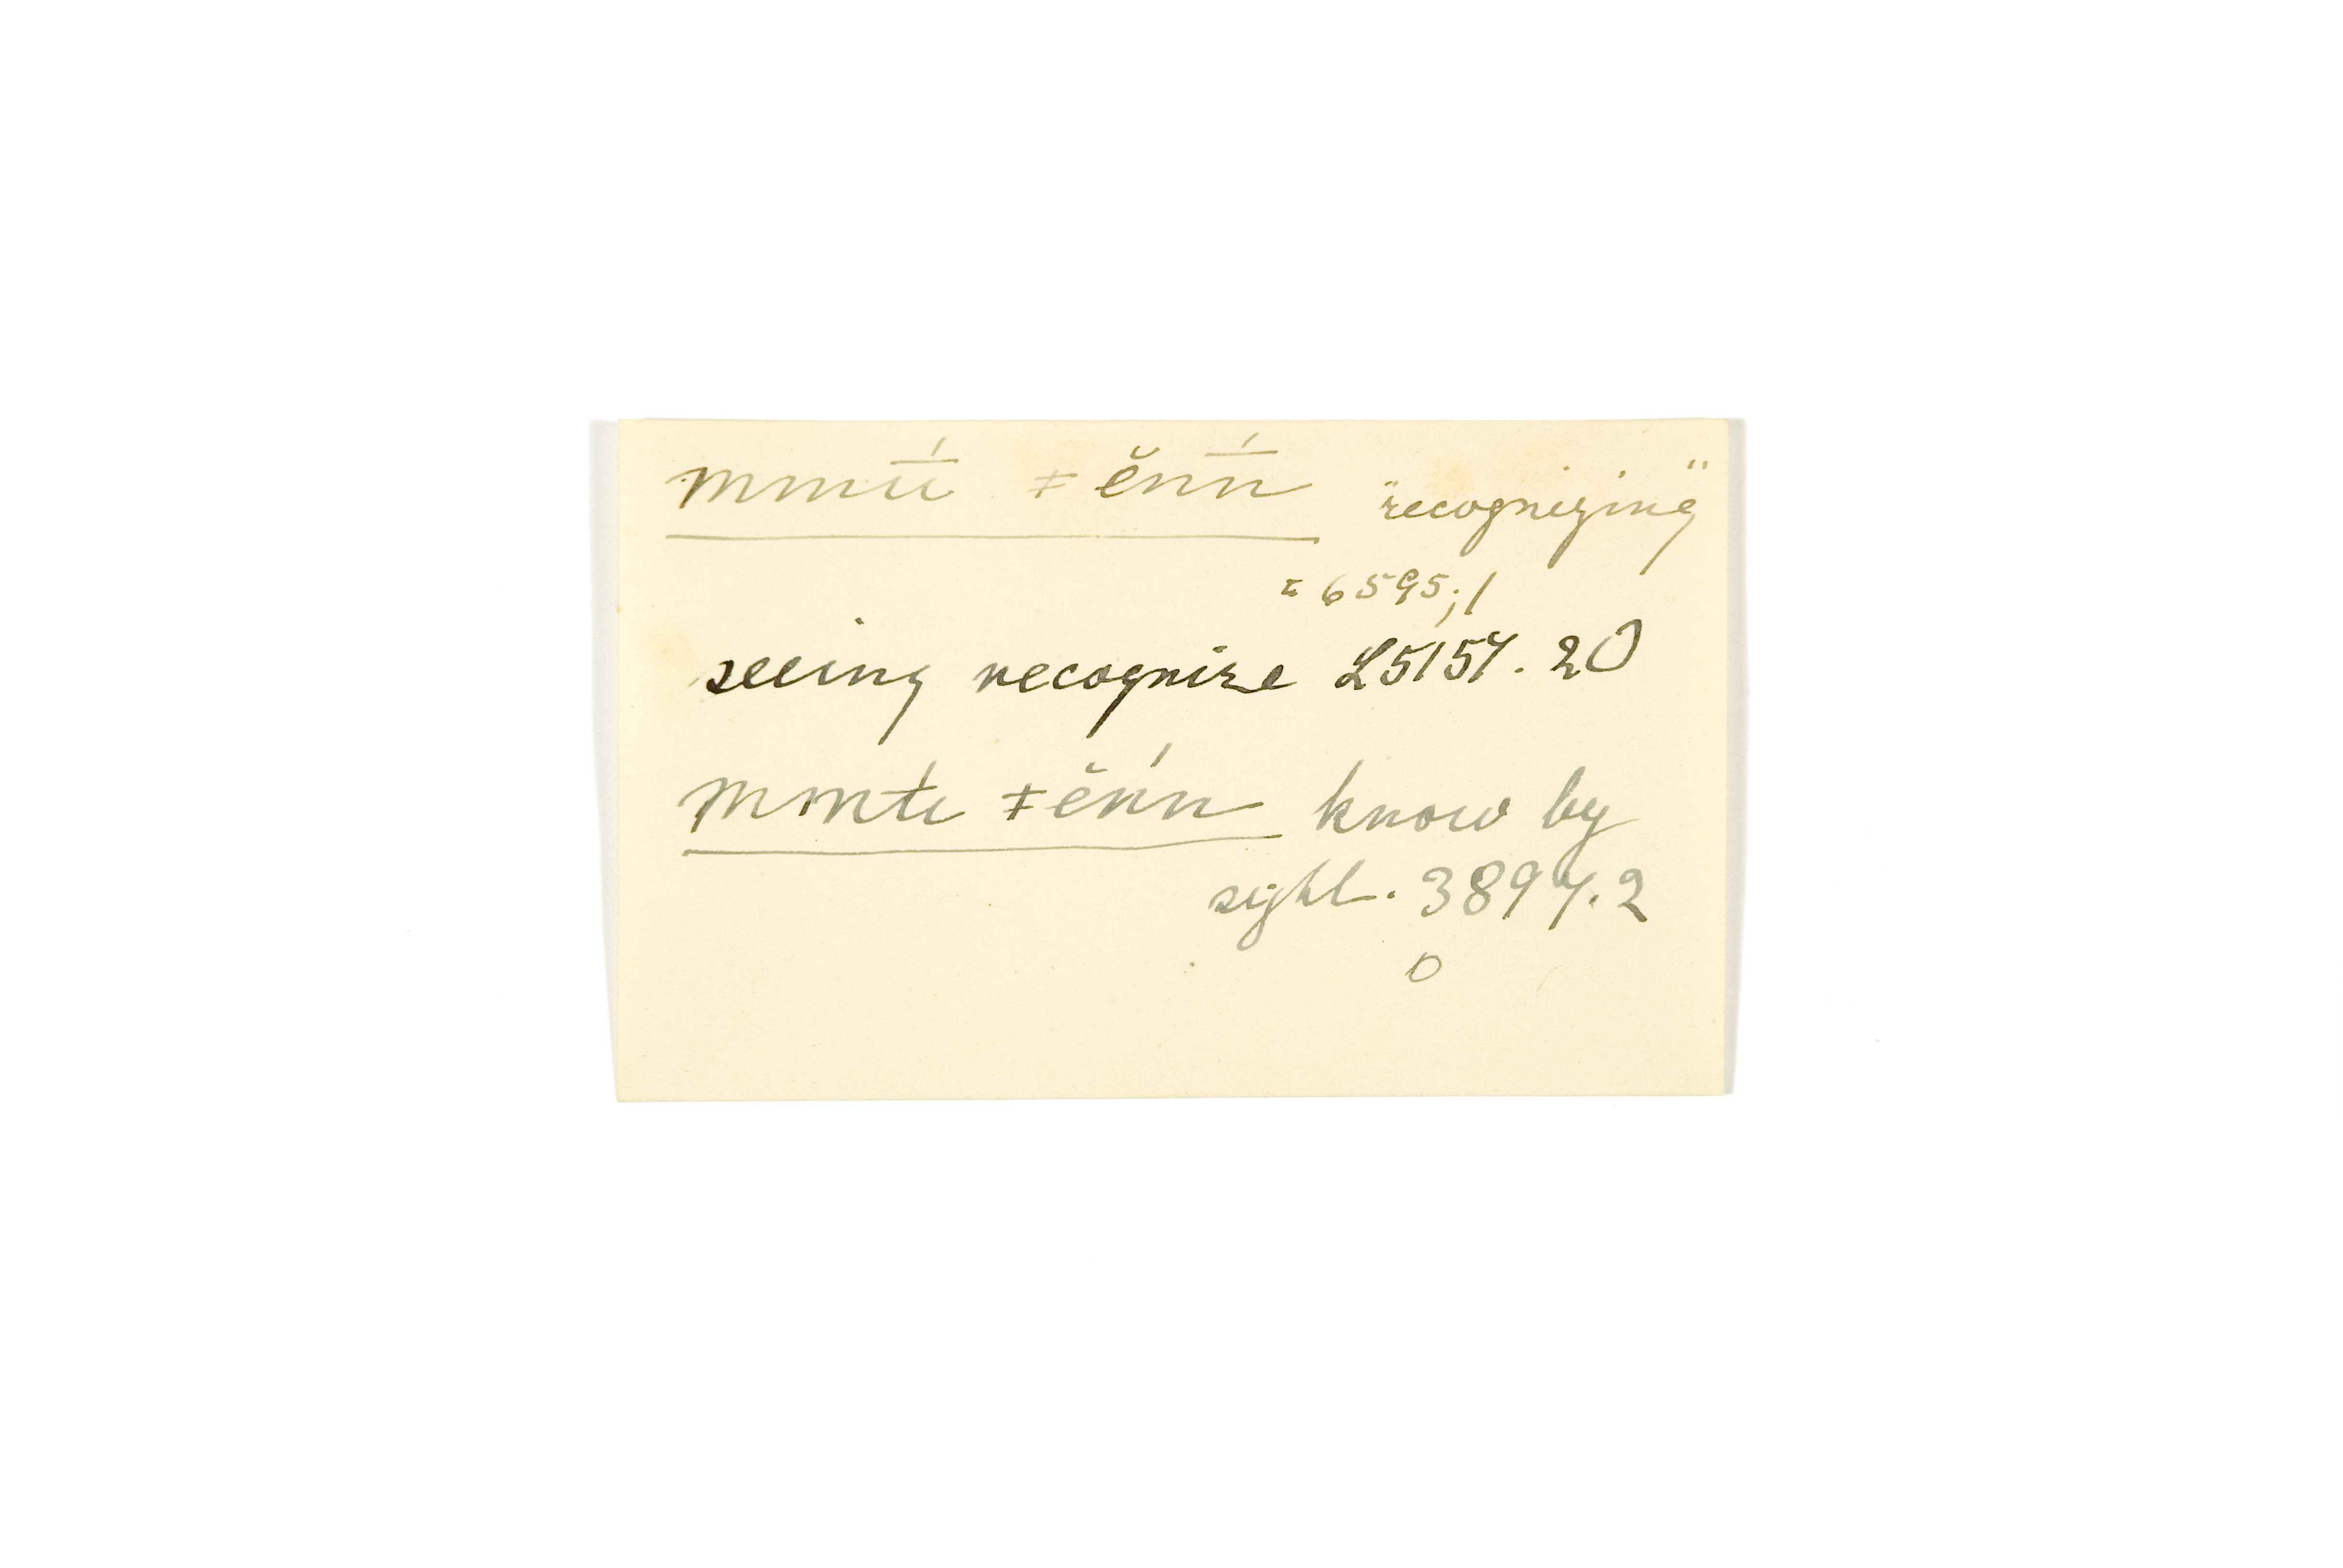 mmū́ ǂ ĕnń̄ "recognizing"
= 6595; 1
seeing recognize L5154. 20
mmú̵ ǂ ĕńn know by
sight. 3894. 2
0